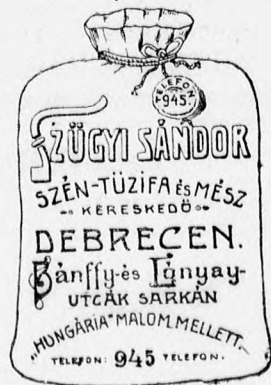 TELEFON
945.
SZÜGYI SÁNDOR
SZÉN-TÜZIFA ÉS MÉSZ
KERESKEDÖ
DEBRECEN.
Bánffy-és Lónyay-
UTCÁK SARKÁN
„HUNGÁRIA” MALOM MELLETT.
TELEFON: 945 TELEFON.